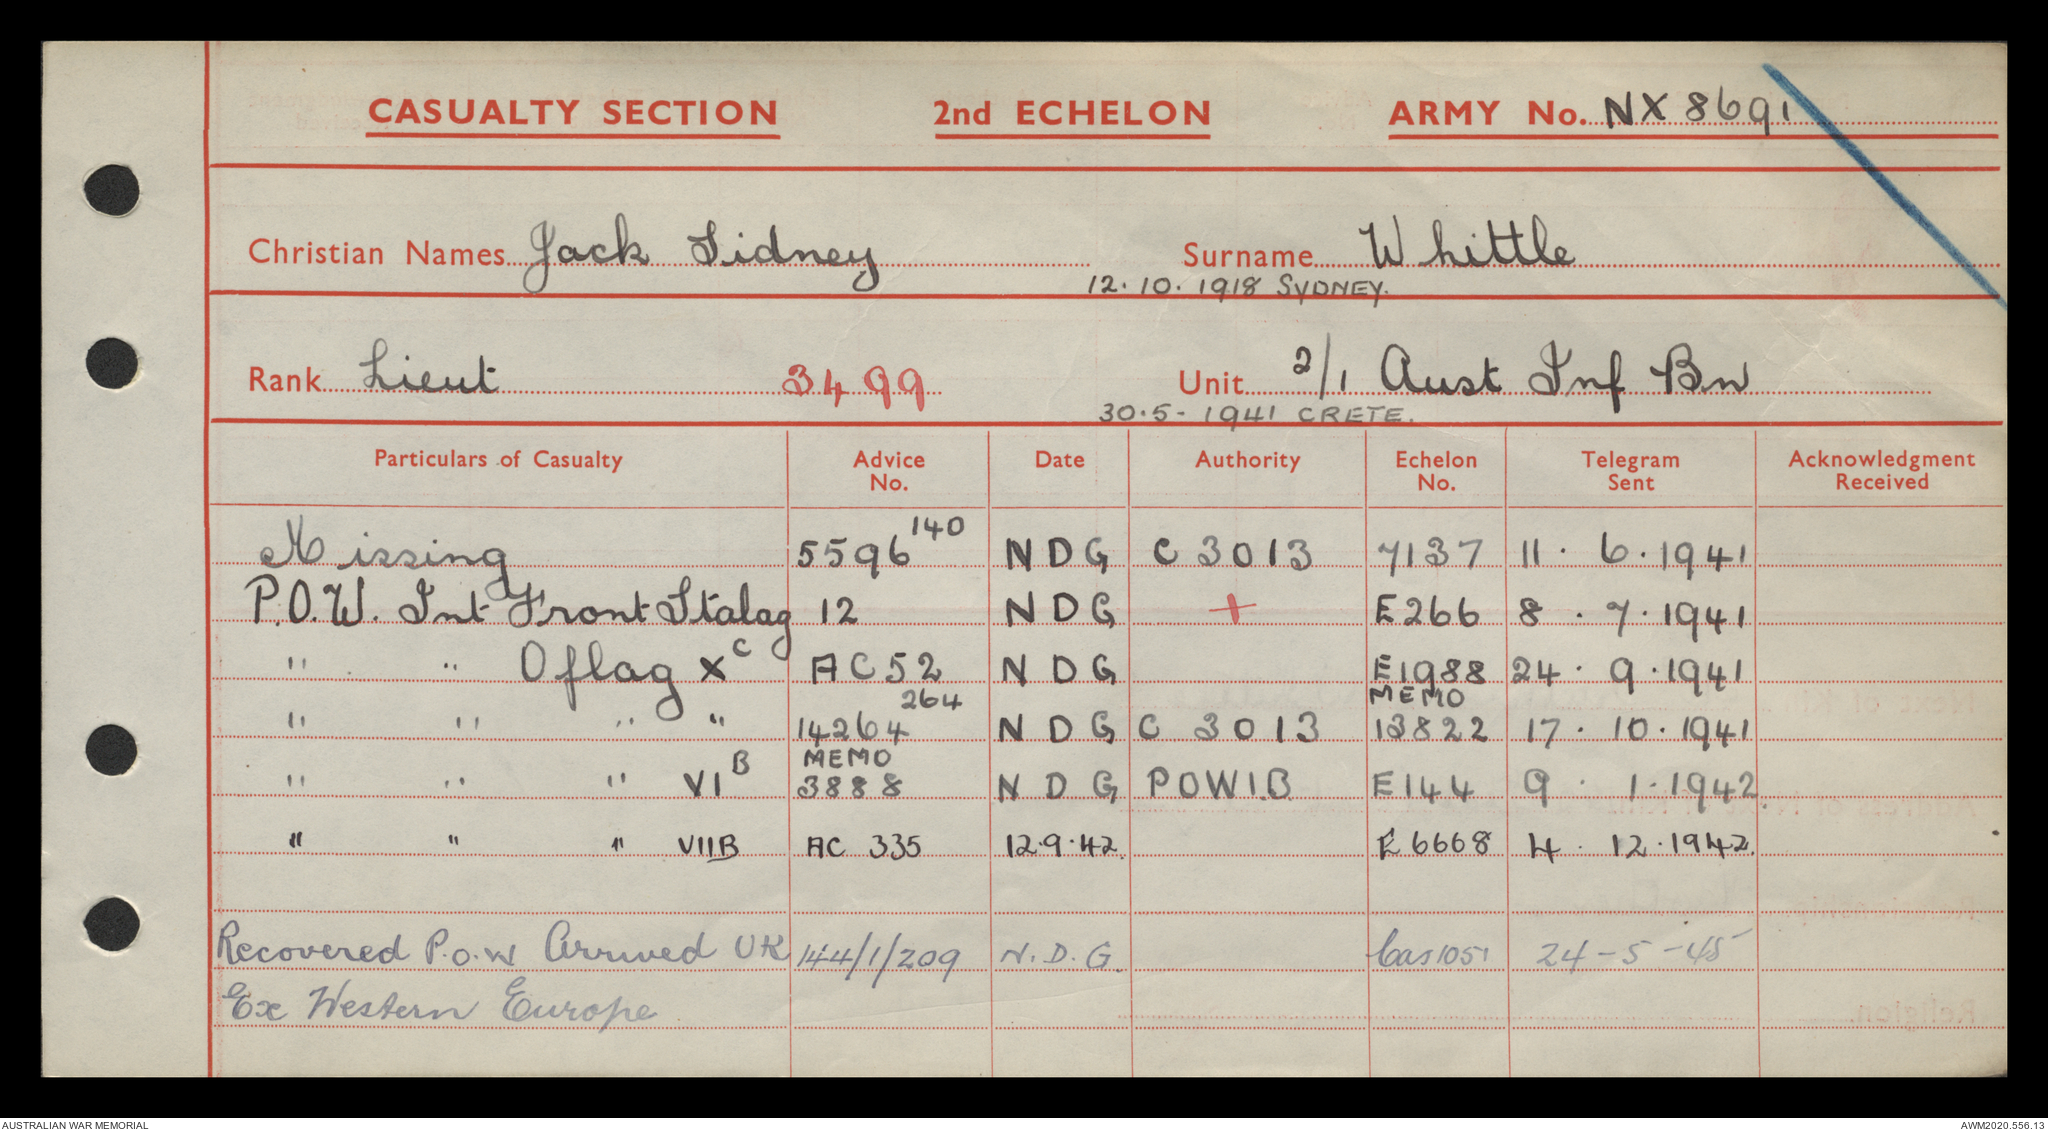 CASUALTY SECTION 2nd ECHELON ARMY No. NX 8691
Christian Names Jack Sidney Surname Whittle
12.10.1918 SYDNEY.
Rank Lieut 3499 Unit 2/1 Aust Inf Bn
30.5-1941 CRETE.
Particulars of Casualty Advice No. Date Authority Echelon No. Telegram Sent Acknowledgment Received
Missing 5596 140 N D G C 3013 7137 11. 6. 1941
P.O.W. Int Front Stalag 12 N D G + E266 8. 7. 1941
" " Oflag X C AC52 N D G E1988 24. 9. 1941
" " " " 14264 264 N D G C 3013 MEMO 13822 17. 10. 1941
" " " VI B MEMO 3888 N D G POWIB E144 9. 1. 1942.
" " " VIIB AC 335 12.9.42. E 6668 4. 12. 1942.
Recovered P.O.W Arrived UK 144/1/209 N.D.G. Cas1051 24-5-45
Ex Western Europe
AUSTRALIAN WAR MEMORIAL AWM2020.556.13